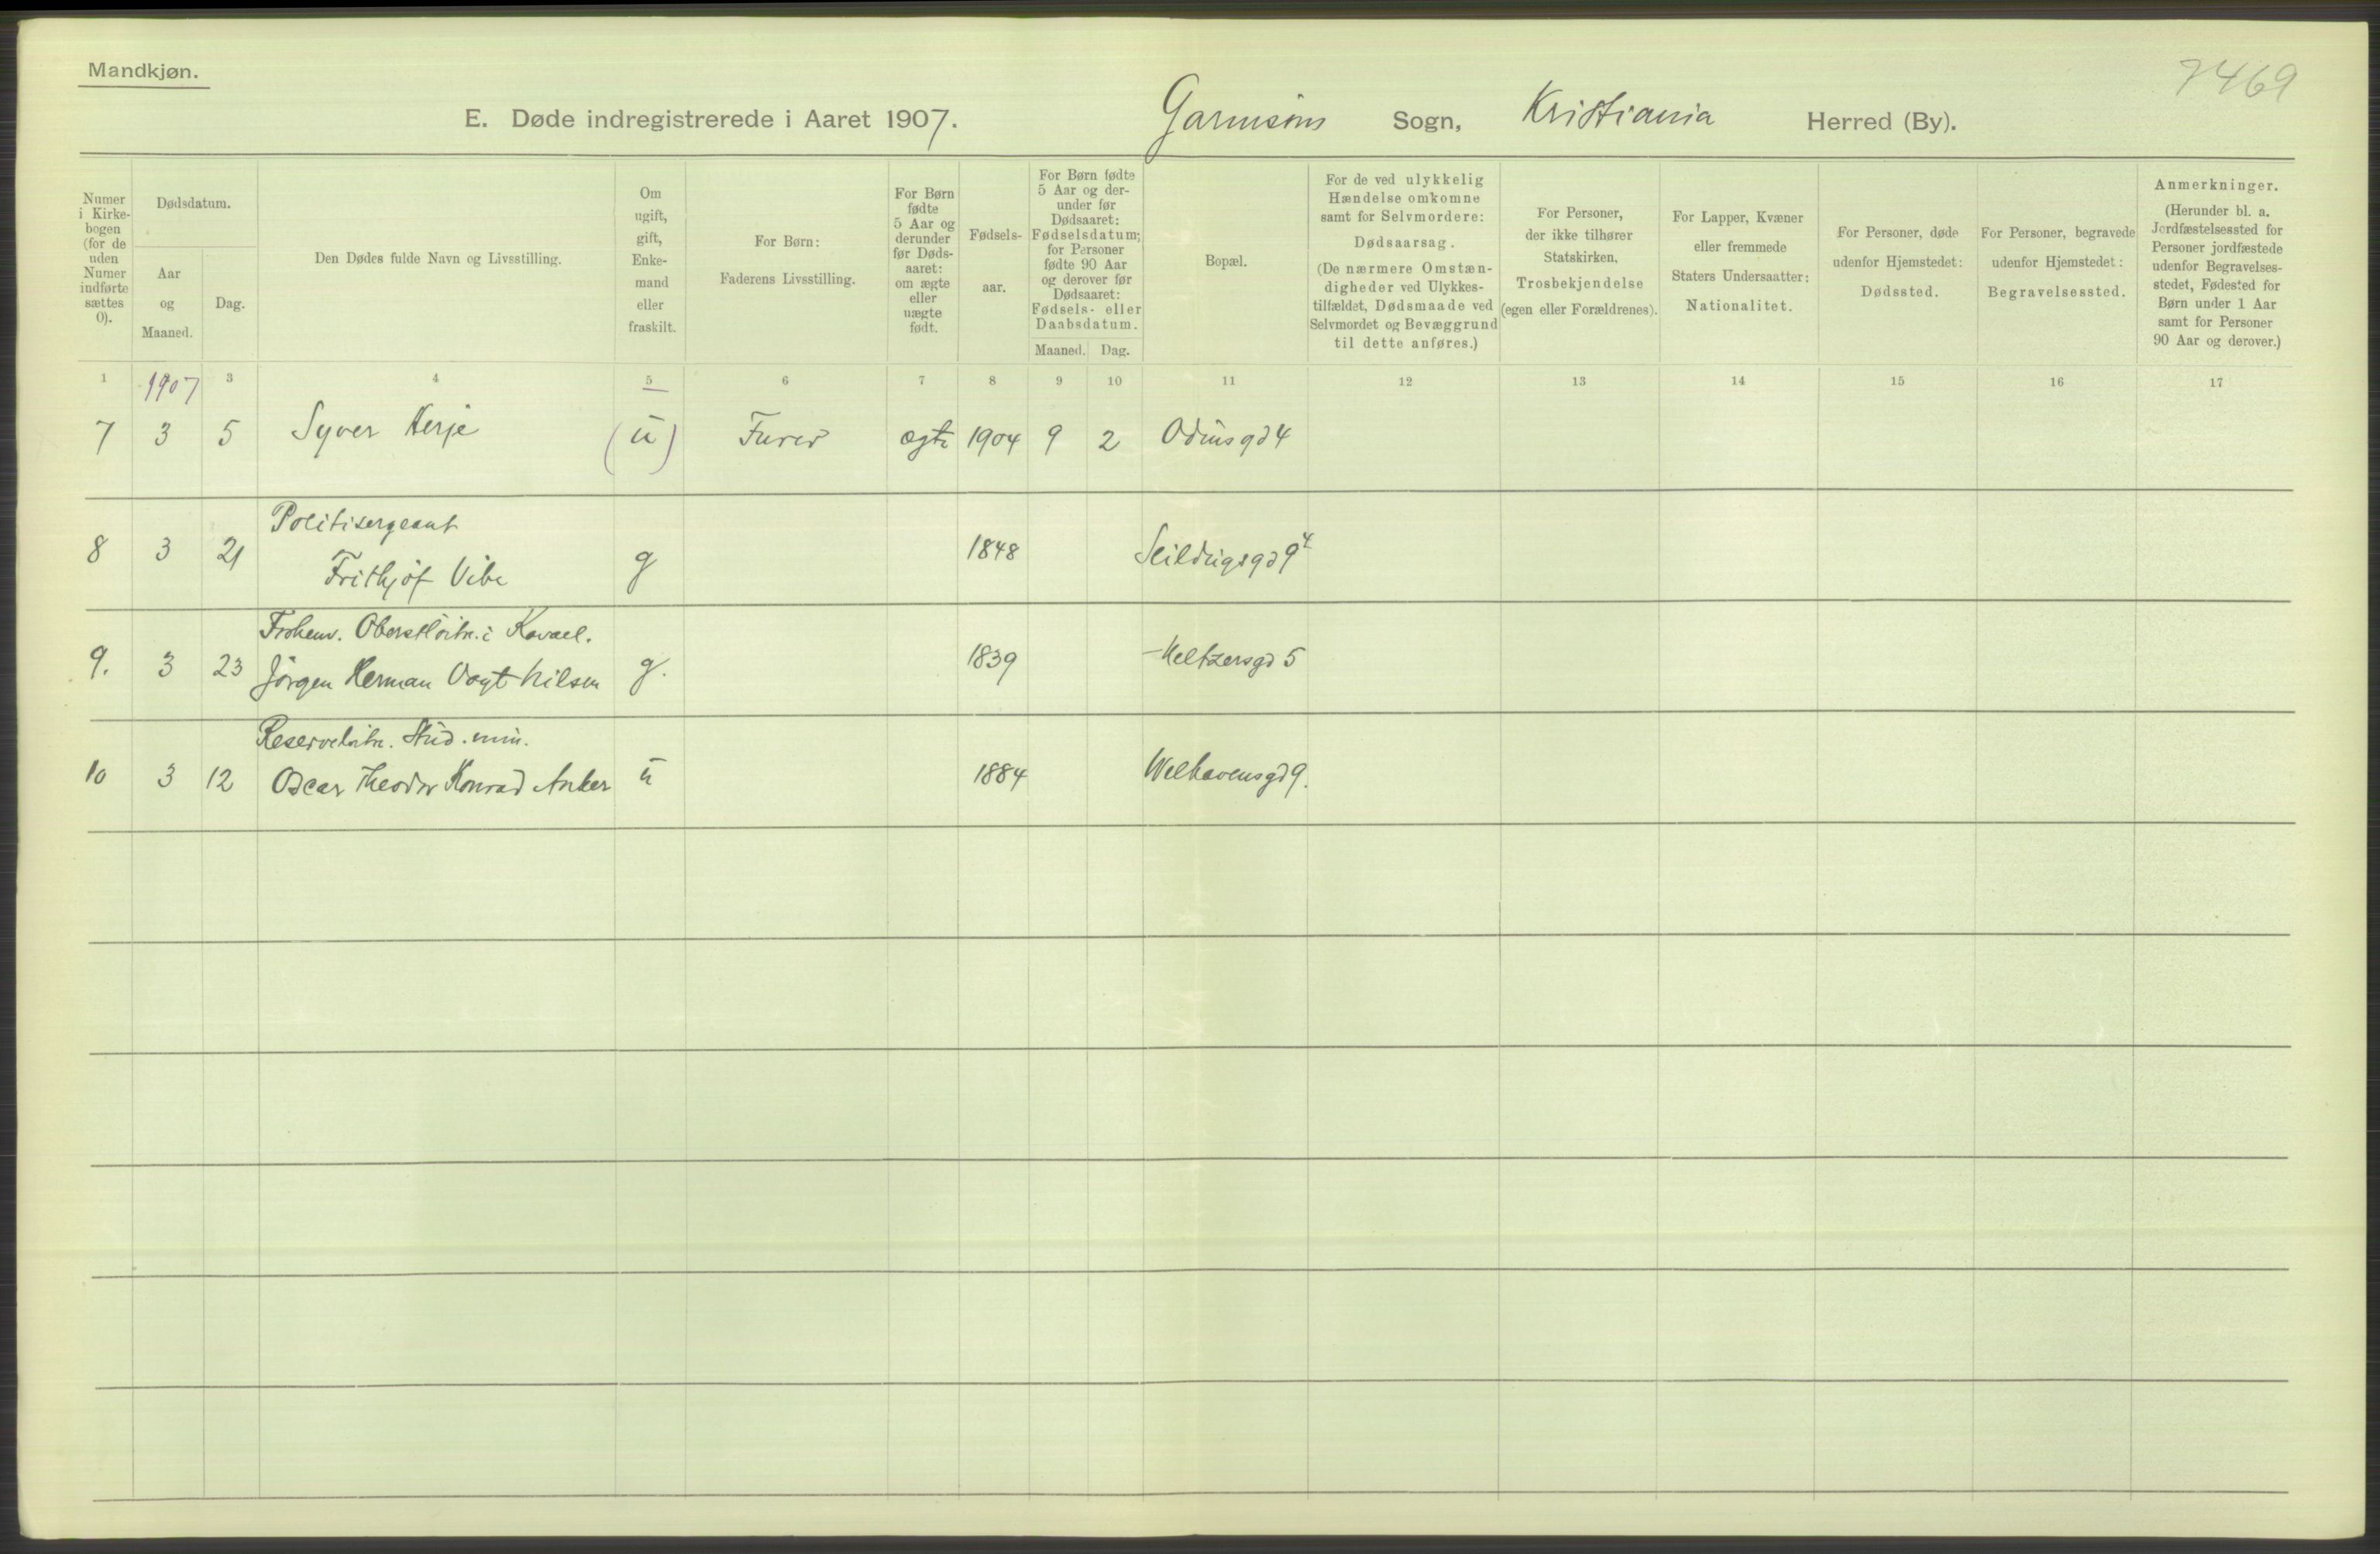 Mandkjøn.
7469
E. Døde indregistrerede i Aaret 1907. Garnisons Sogn, Kristiania Herred (By).
Numer i Kirkebogen (for de uden Numer indførte sættes 0).
Dødsdatum.
Aar og Maaned.
Dag.
Den Dødes fulde Navn og Livsstilling.
Om ugift, gift, Enkemand eller fraskilt.
For Børn:
Faderens Livsstilling.
For Børn fødte 5 Aar og derunder før Dødsaaret: om ægte eller uægte født.
Fødselsaar.
For Børn fødte 5 Aar og derunder før Dødsaaret: Fødselsdatum; for Personer fødte 90 Aar og derover før Dødsaaret: Fødsels- eller Daabsdatum.
Maaned. Dag.
Bopæl.
For de ved ulykkelig Hændelse omkomne samt for Selvmordere:
Dødsaarsag.
(De nærmere Omstændigheder ved Ulykkestilfældet, Dødsmaade ved Selvmordet og Bevæggrund til dette anføres.)
For Personer, der ikke tilhører Statskirken,
Trosbekjendelse
(egen eller Forældrenes).
For Lapper, Kvæner eller fremmede Staters Undersaatter:
Nationalitet.
For Personer, døde udenfor Hjemstedet:
Dødssted.
For Personer, begravede udenfor Hjemstedet:
Begravelsessted.
Anmerkninger.
(Herunder bl. a. Jordfæstelsessted for Personer jordfæstede udenfor Begravelsesstedet, Fødested for Børn under 1 Aar samt for Personer 90 Aar og derover.)
1 1907 3 4 5 6 7 8 9 10 11 12 13 14 15 16 17
7 3 5 Syver Kerje (u) Furer ægte 1904 9 2 Odinsgd 4
Politisergeant
8 3 21 Frithjof Vibe g 1848 Seildugsgd 9
Oberstløitn. i Kavael.
9. 3 23 Jörgen Herman Vogt Nilsen g. 1839 Meltzersgd 5
Reserveløitn. Stud. min.
10 3 12 Oscar Theodor Konrad Anker u 1884 Welhavensgd 9.